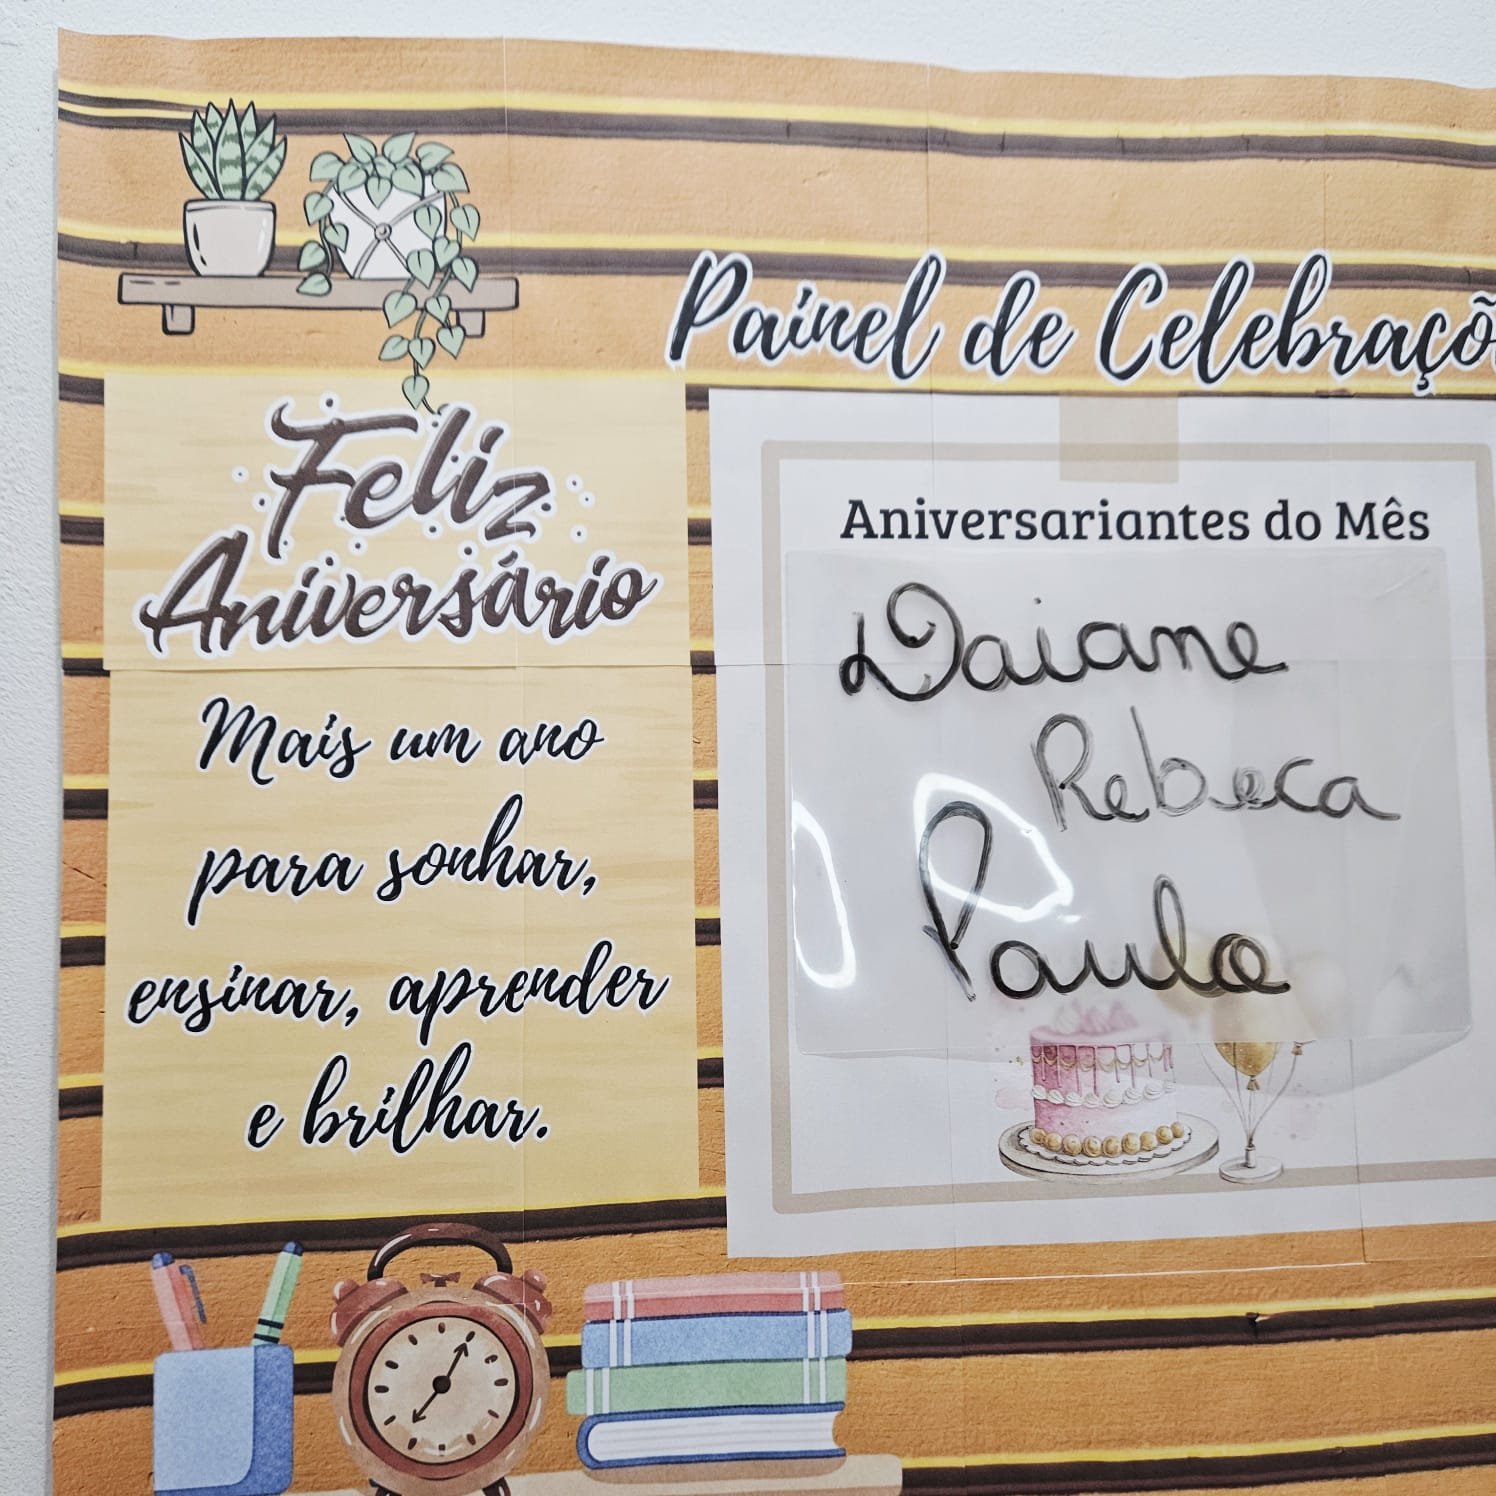 Painel de Celebraçõ
Feliz
Aniversário
Mais um ano
para sonhar,
ensinar, aprender
e brilhar.
Aniversariantes do Mês
Daiane
Rebeca
Paulo